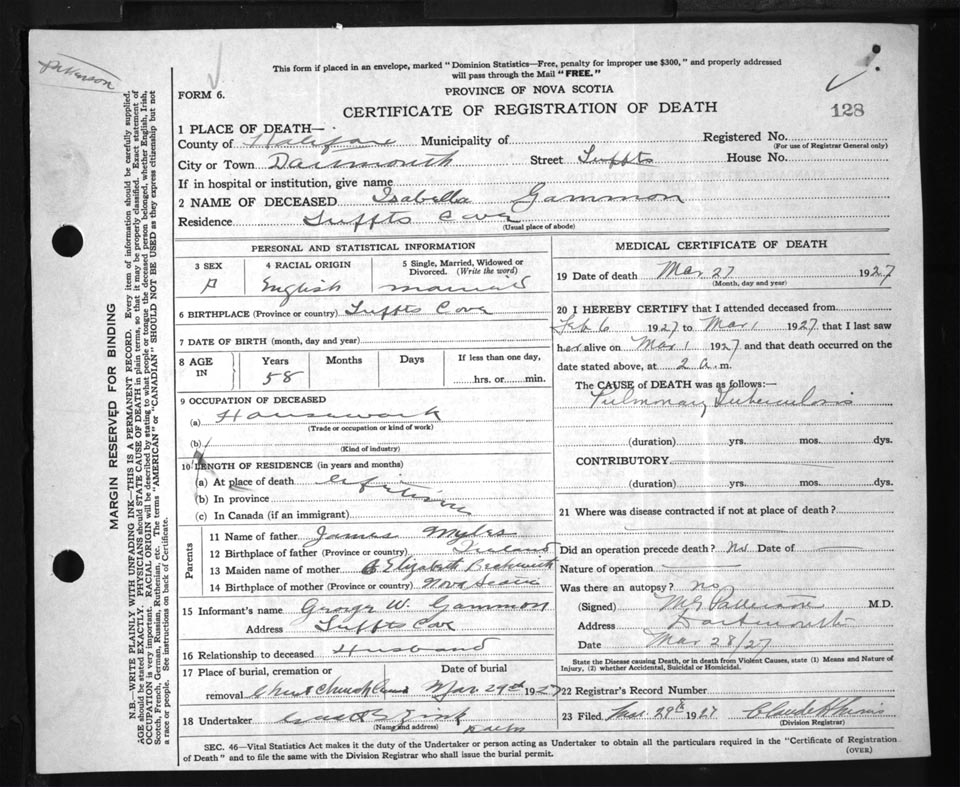 This form if placed in an envelope, marked "Dominion Statistics—Free, penalty for improper use $300," and properly addressed
will pass through the Mail "FREE."
FORM 6.
PROVINCE OF NOVA SCOTIA
CERTIFICATE OF REGISTRATION OF DEATH
128
1 PLACE OF DEATH—
County of Halifax Municipality of Registered No.
(For use of Registrar General only)
City or Town Dartmouth Street Tuffts House No.
If in hospital or institution, give name
2 NAME OF DECEASED Isabella Gammon
Residence Tuffts Cove
(Usual place of abode)
PERSONAL AND STATISTICAL INFORMATION
3 SEX
4 RACIAL ORIGIN English
5 Single, Married, Widowed or
Divorced. (Write the word)
married
6 BIRTHPLACE (Province or country) Tuffts Cove
7 DATE OF BIRTH (month, day and year)
8 AGE
IN
Years Months Days If less than one day,
58 hrs. or min.
9 OCCUPATION OF DECEASED
(a) Housework
(Trade or occupation or kind of work)
(b)
(Kind of industry)
10 LENGTH OF RESIDENCE (in years and months)
(a) At place of death lifetime
(b) In province
(c) In Canada (if an immigrant)
Parents
11 Name of father James Myles
12 Birthplace of father (Province or country) Ireland
13 Maiden name of mother Elizabeth
14 Birthplace of mother (Province or country) Nova Scotia
15 Informant's name George W. Gammon
Address Tuffts Cove
16 Relationship to deceased Husband
17 Place of burial, cremation or Date of burial
removal Christ Church Mar 29th 1927
18 Undertaker Zink
(Name and address)
MEDICAL CERTIFICATE OF DEATH
19 Date of death Mar 27 1927
(Month, day and year)
20 I HEREBY CERTIFY that I attended deceased from
Feb 6 1927 to Mar 1 1927 that I last saw
her alive on Mar 1 1927 and that death occurred on the
date stated above, at 2 a.m.
The CAUSE of DEATH was as follows:—
Pulmonary Tuberculosis
(duration) yrs. mos. dys.
CONTRIBUTORY
(duration) yrs. mos. dys.
21 Where was disease contracted if not at place of death?
Did an operation precede death? No Date of
Nature of operation
Was there an autopsy? no
(Signed) M.D.
Address Dartmouth
Date Mar 28/27
State the Disease causing Death, or in death from Violent Causes, state (1) Means and Nature of
Injury, (2) whether Accidental, Suicidal or Homicidal.
22 Registrar's Record Number
23 Filed Mar. 29th 1927
(Division Registrar)
SEC. 46—Vital Statistics Act makes it the duty of the Undertaker or person acting as Undertaker to obtain all the particulars required in the "Certificate of Registration
of Death" and to file the same with the Division Registrar who shall issue the burial permit. (OVER)
MARGIN RESERVED FOR BINDING
N.B. WRITE PLAINLY WITH UNFADING INK—THIS IS A PERMANENT RECORD. Every item of information should be carefully supplied.
AGE should be stated EXACTLY. PHYSICIANS should STATE CAUSE OF DEATH in plain terms, so that it may be properly classified. Exact statement of
OCCUPATION is very important. RACIAL ORIGIN will be described by stating to what people or tongue the deceased person belonged, whether English, Irish,
Scotch, French, German, Russian, Ruthenian, etc. The terms "AMERICAN" or "CANADIAN" SHOULD NOT BE USED as they express citizenship but not
a race or people. See instructions on back of Certificate.